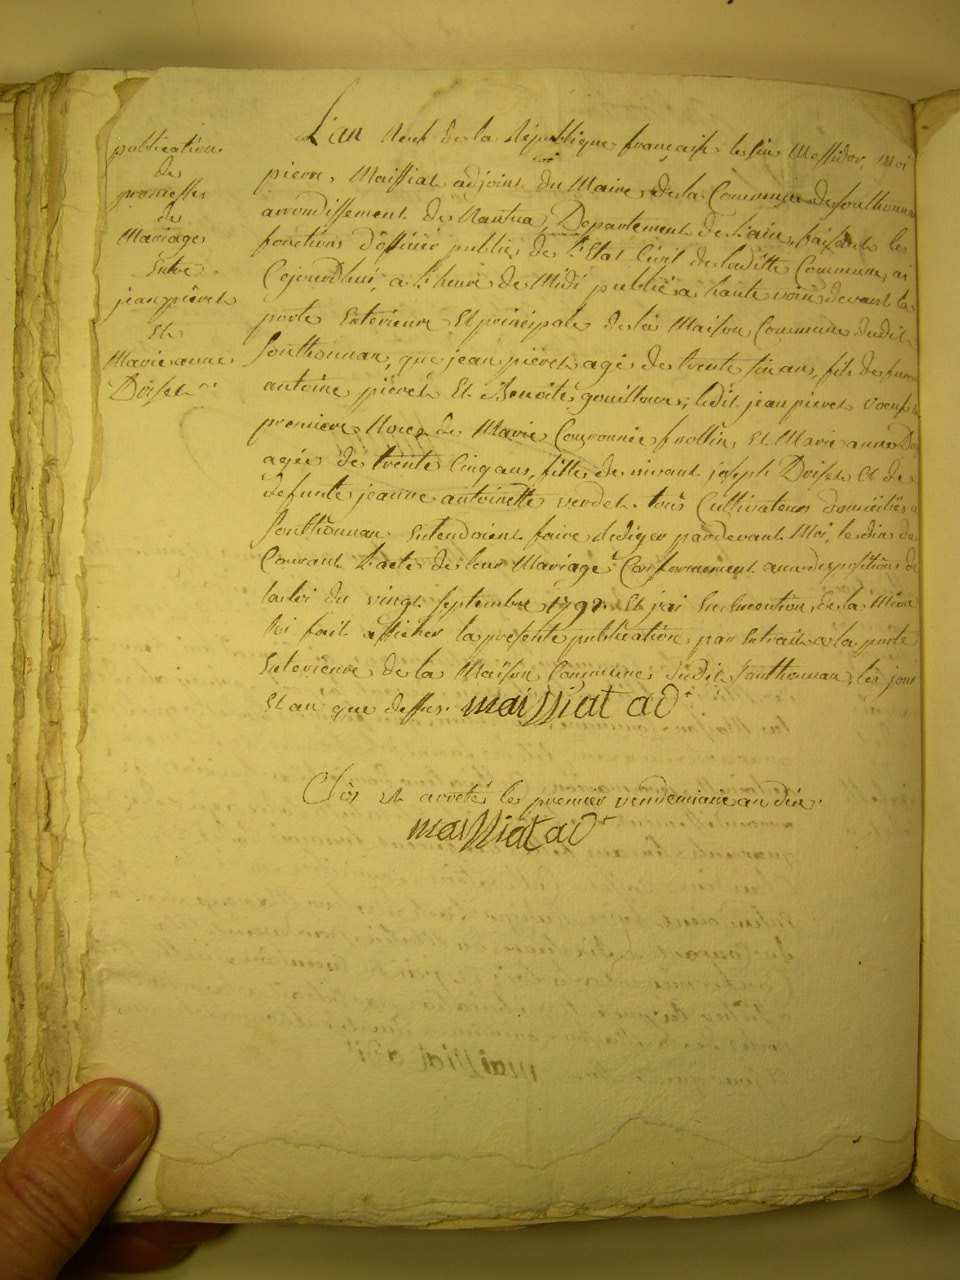 publication
de
promesses
de
Mariages
Entre
jean pierret
Et
Marie anne
Doisel
L'an Neuf de la République française le six Messidor, Moi
pierre Maissiat adjoint du Maire de la Commune de sonthonnax
arrondissement de Nantua, Département de L'ain, faisant les
fonctions d'officier public de l'Etat Civil de laditte Commune, ai
Cejourdhui à l'heure de Midi publié à haute voix devant la
porte Exterieure Et principale de la Maison Commune dudit
Sonthonnax, que jean pierret agé de trente six ans, fils de furent
antoine pierret Et Benoite gouilloux, ledit jean pierret voeuf en
premiere Noces de Marie Couronnée, Et Marie anne
agée de trente Cinq ans, fille de vivant joseph Doisel Et de
defunte jeanne antoinette verdet. tous Cultivateurs domiciliés a
Sonthonnax Entendoient faire rediger pardevant Moi, le dix du
Courant L'acte de leur Mariage Conformement aux dispositions de
la loi du vingt septembre 1792. Et j'ai En Execution de la Même
loi fait afficher la presente publication par Extrait a la porte
Exterieure de la Maison Commune dudit Sonthonnax, les jour
Et an que dessus. maissiat adt
Clos et arreté le premier vendemiaire an dix.
maissiat adt